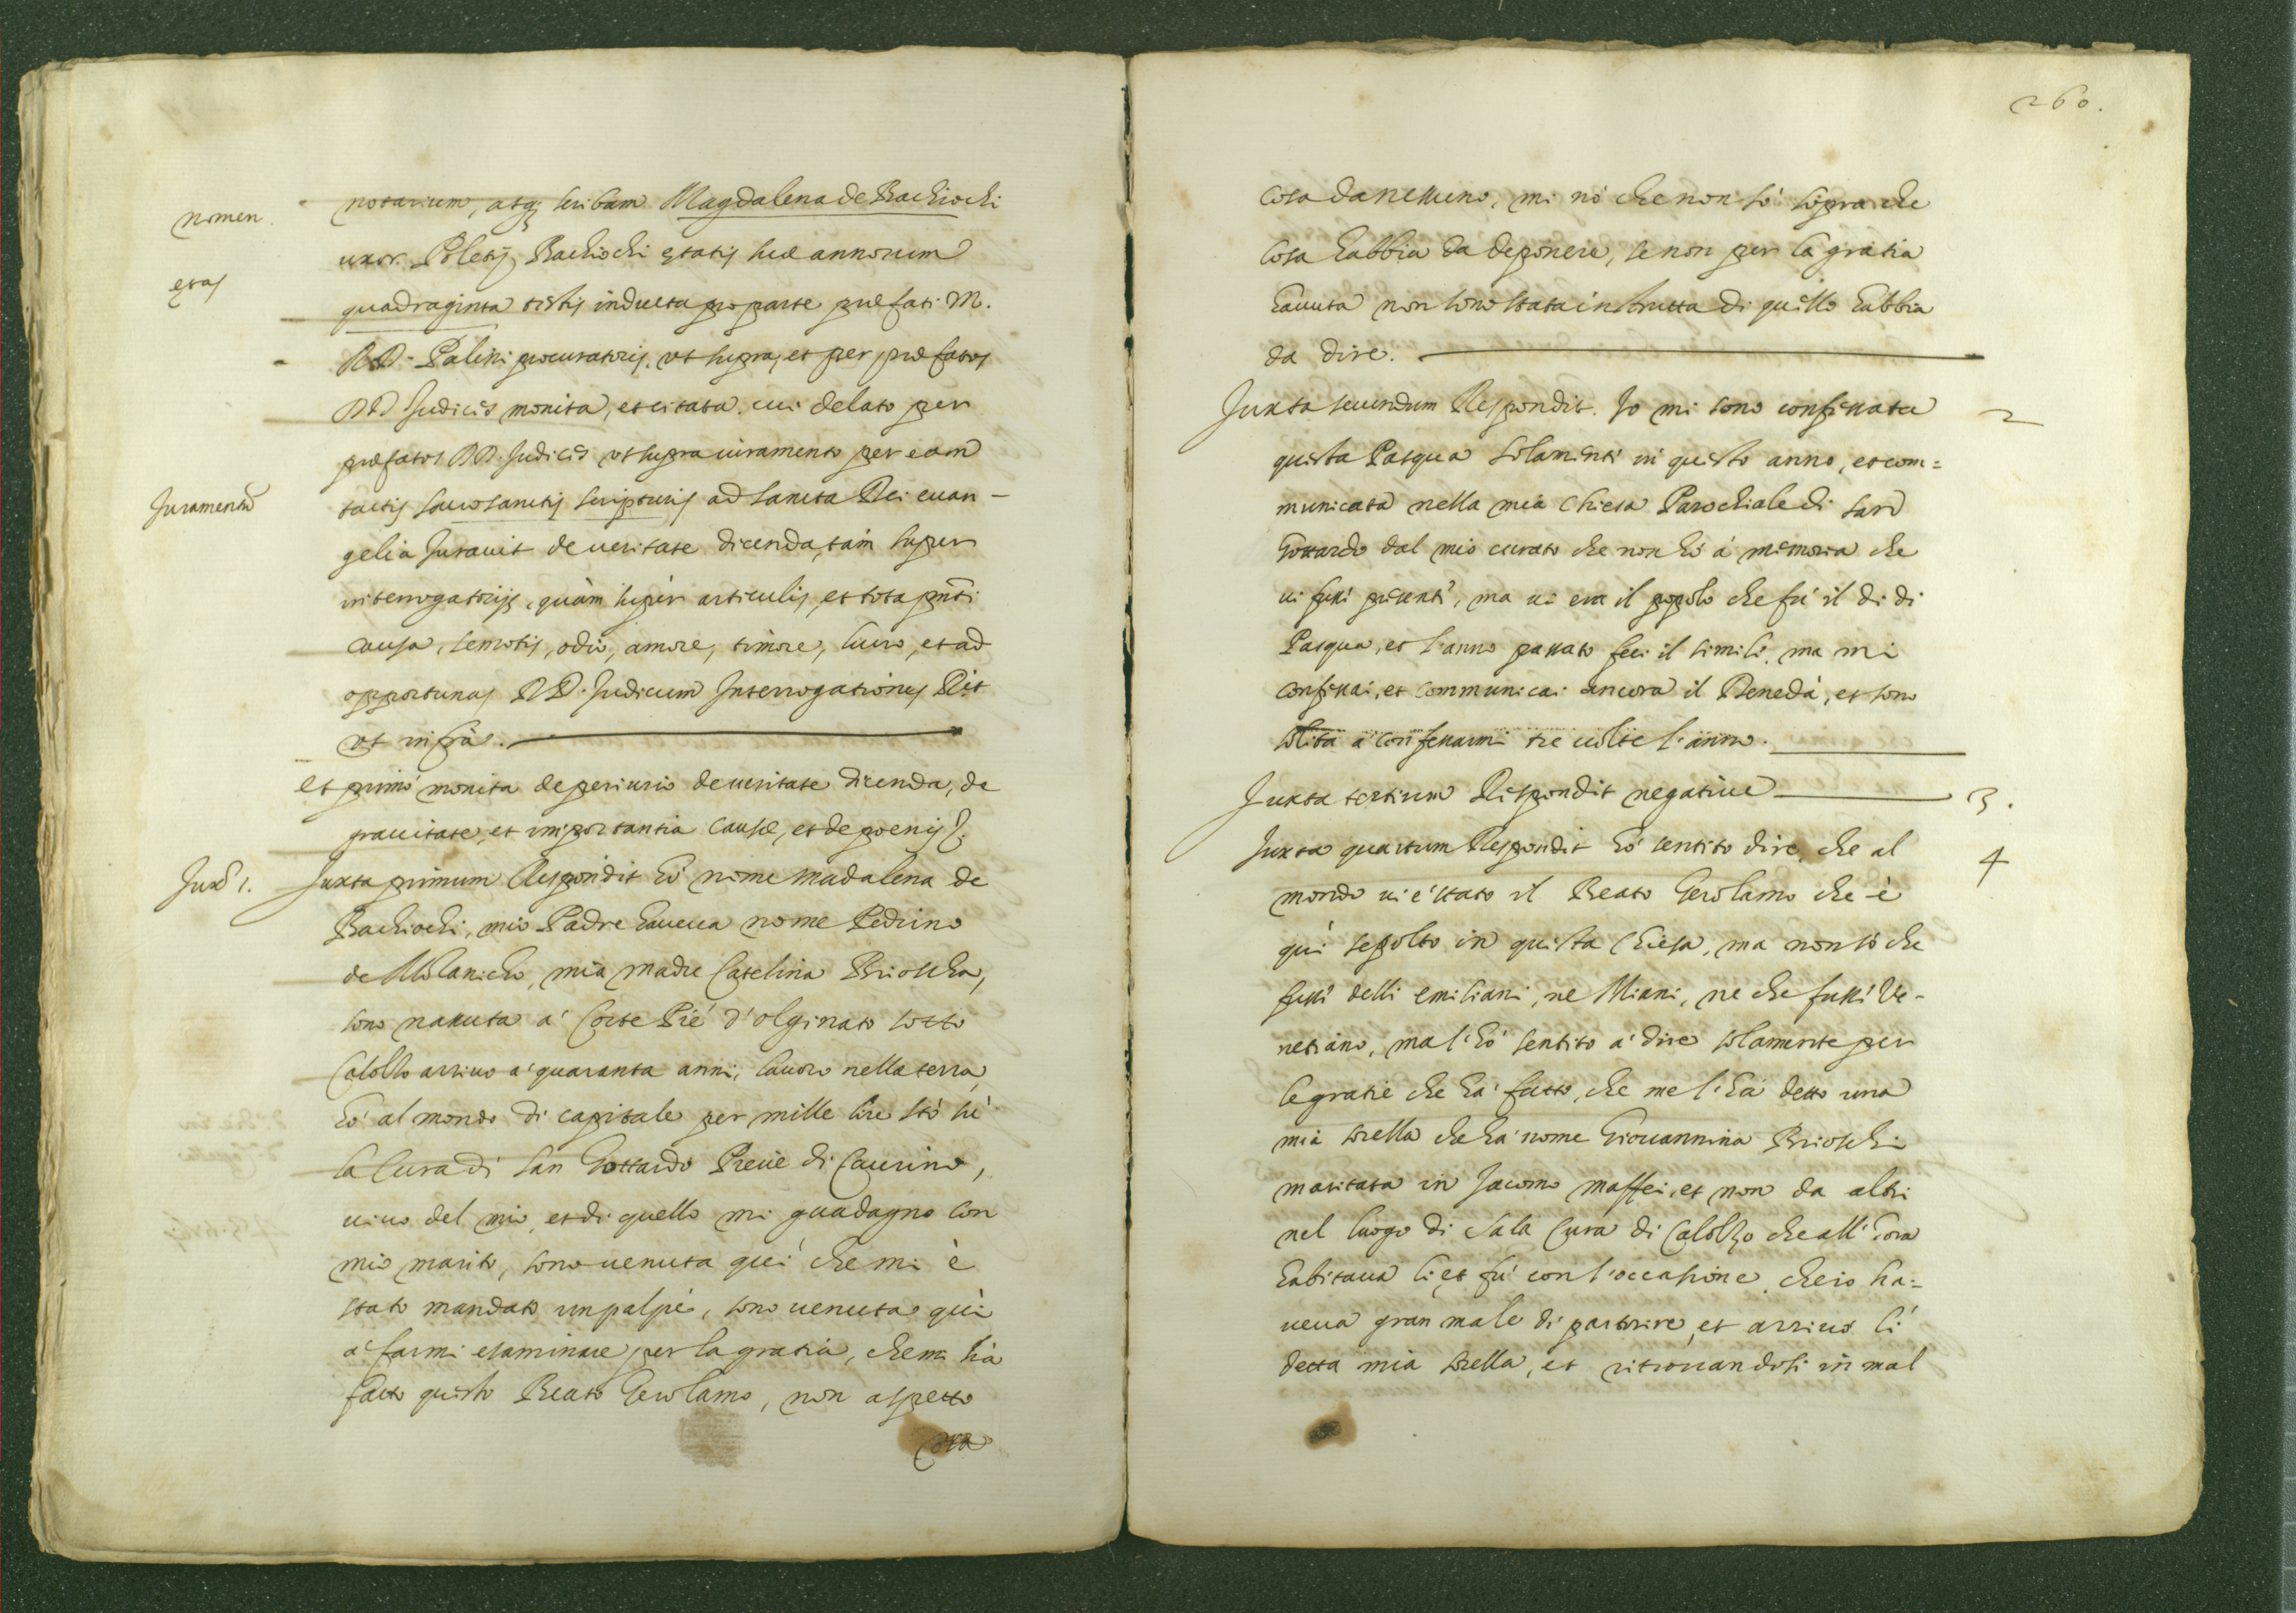 nomen.
notarium, atq; scribam Magdalena de Bachiochi
uxor Poletij Bachiochi ętatis suæ annorum
ętas
quadraginta testis inducta pro parte præfati M.
RD. Palini procuratoris, ut supra, et per præfatos
DD Judices monita, et citata. cui delato per
præfatos DD. Judices ut supra iuramento per eam
Juramentũ
tactis sacrosanctis scripturis ad sancta Dei euan-
gelia Jurauit de ueritate dicenda, tam super
interrogatorijs, quàm super articulis, et tota pñti
causa, remotis, odio, amore, timore, lucro, et ad
opportunas DD. Judicum Interrogationes Rit
ut infra.
et primò monita de periurio de ueritate dicenda, de
grauitate, et importantia causæ, et de poenis
Juxᵃ 1.
Juxta primum Respondit hò nome Madalena de
Bachiochi, mio Padre haueua nome Pedrino
de Molanicho, mia madre Catelina Brioscha,
sono nassuta à Corte Piè d'olginato sotto
Calolzo arriuo a' quaranta anni, lauoro nella terra,
hò al mondo di capitale per mille lire stò sù
la Cura di san Gottardo Preue di Caurino,
uiuo del mio, et di quello mi guadagno con
mio marito, sono uenuta quì che mi è
stato mandato un palpè, sono uenuta quì
à farmi esaminare per la gratia, che mi hà
fatto questo Beato Gerolamo, non aspetto
cosa
260.
cosa da nessuno, mi nò che non sò sopra che
cosa habbia da deponere, se non per la gratia
hauuta non sono stata instrutta di quello habbia
da dire.
Juxta secundum Respondit. Io mi sono confessata
2
questa Pasqua solamente in questo anno, et com=
municata nella mia Chiesa Parochiale di san
Gottardo dal mio curato che non hò à memoria che
ui fusse presente, ma ui era il popolo che fù il di di
Pasqua, et l'anno passato feci il simile, ma mi
confessai, et communicai ancora il Denedà, et sono
solita a confessarmi tre uolte l'anno.
Juxta tertium Respondit negatiue
3.
Juxta quartum Respondit hò sentito dire, che al
4
mondo ui è stato il Beato Gerolamo che è
quì sepolto in questa Chiesa, ma non sò che
fusse delli emiliani, ne Miani, ne che fusse Ve-
netiano, ma l'hò sentito a dire solamente per
le gratie che hà fatto, che me l'hà detto una
mia sorella che hà nome Giouannina Brioschi
maritata in Jacomo maffei, et non da altri
nel luogo di Sala Cura di Calolzo che all'hora
habitaua lì, et fù con l'occasione, che io ha=
ueua gran male di partorire, et arriuò lì
detta mia sorella, et ritrouandosi in mal